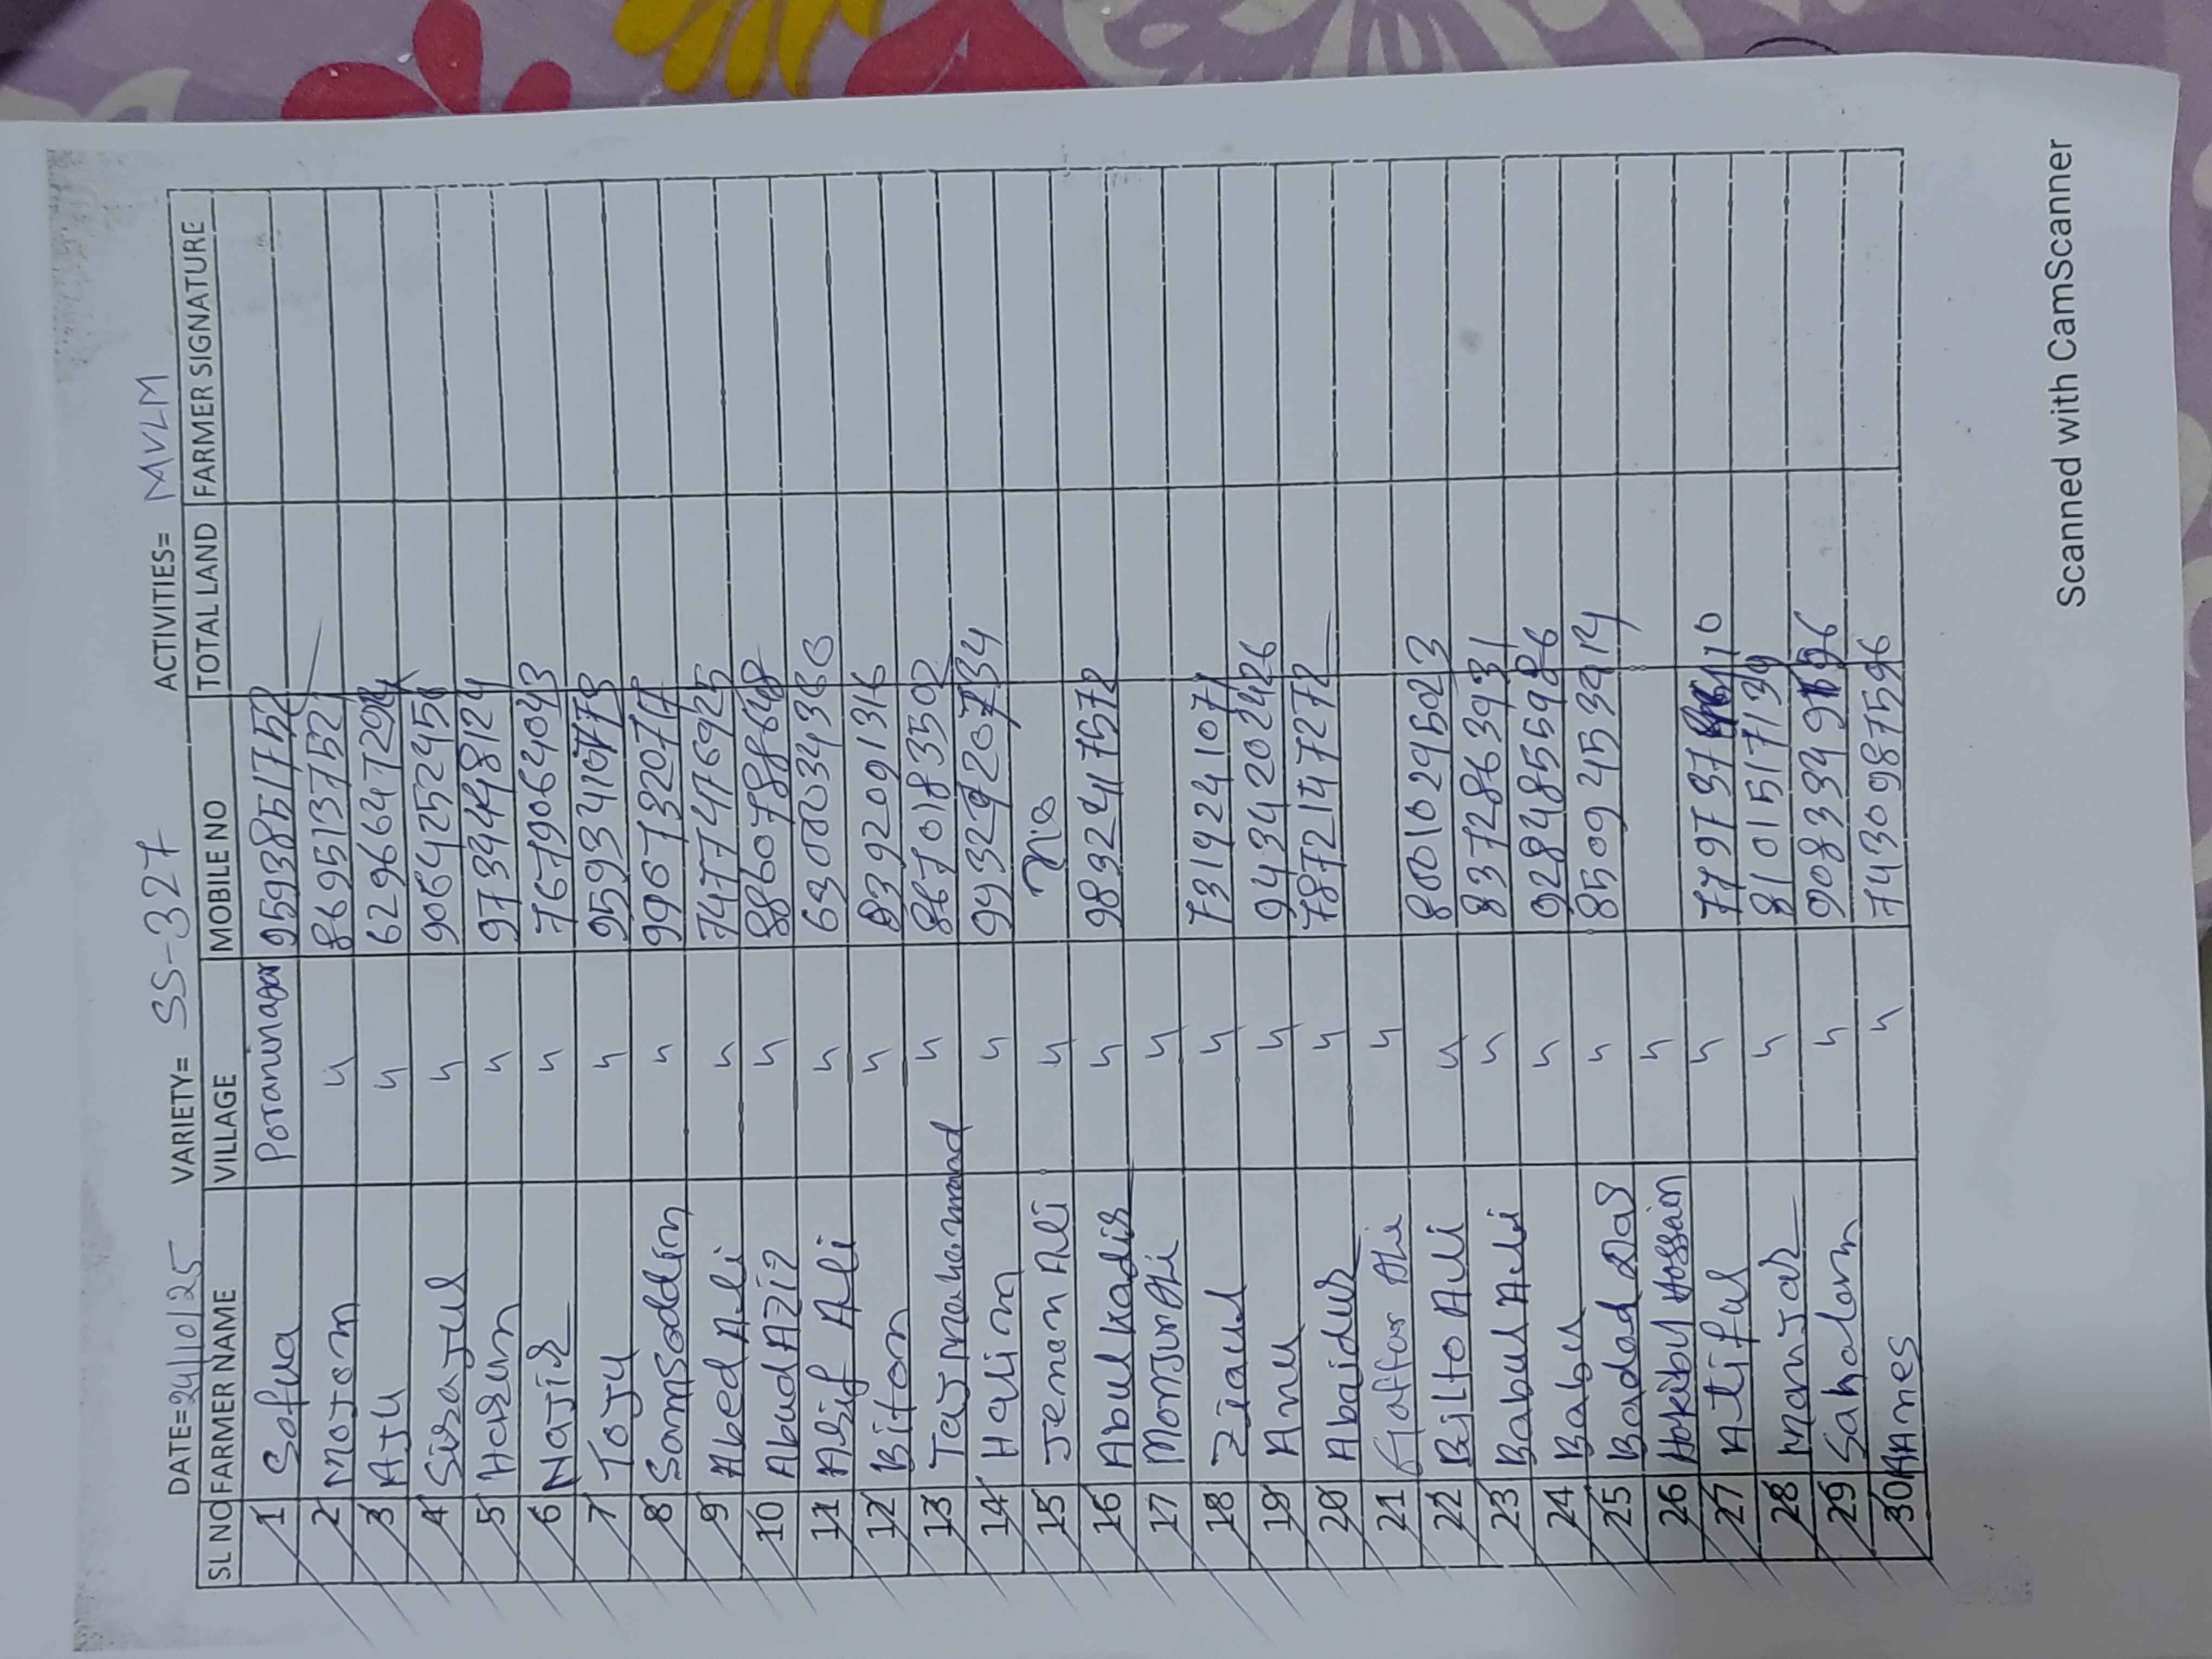 DATE=24/10/25 VARIETY= SS-327 ACTIVITIES= MVLM
SL NO FARMER NAME VILLAGE MOBILE NO TOTAL LAND FARMER SIGNATURE
1 Sofua Poraninagar 9593851752
2 Mojom 〃 8695137521
3 AJU 〃 629664729
4 Sirajul 〃 9064252245
5 Harun 〃 9734448124
6 Najir 〃 7679064043
7 Toju 〃 9593410778
8 Samsoddin 〃 9967320717
9 Abed Ali 〃 7477476925
10 Abud Aziz 〃 8860788648
11 Asif Ali 〃 630003436
12 Biton 〃 8392091316
13 Tajmahammad 〃 8670183502
14 Halim 〃 9932920734
15 Jeman Ali 〃
16 Abul kadir 〃 9832417572
17 Monjur Ali 〃
18 Ziaul 〃 7319241071
19 Anu 〃 9434202426
20 Abaidur 〃 7872147272
21 Gaffar Ali 〃
22 Bilto Ali 〃 8001029502 3
23 Babul Ali 〃 8372863931
24 Babu 〃 9284855986
25 Badal Das 〃 8509453914
26 Hokibul Hossain 〃
27 Atiful 〃 779737 10
28 Manjar 〃 8101517139
29 Sahalam 〃 9083349
30 Anes 〃 7430987596
Scanned with CamScanner